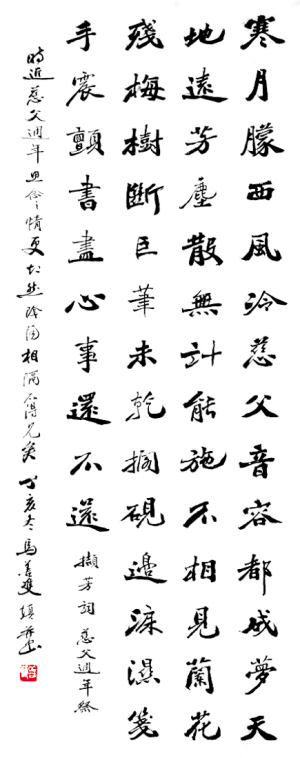 寒月朦西風冷慈父音容都成夢天
地遠芳塵散無計能施不相見蘭花
殘梅樹斷巨筆未乾擱硯邊淚濕箋
手震顫書盡心事還不還 擷芳詞 慈父週年祭
時近慈父週年思念之情更然陰陽相隔見矣 丁亥冬馬善雙填并書